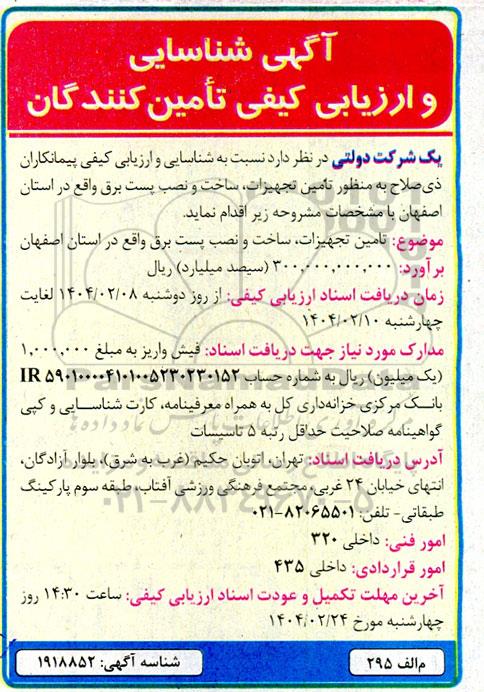 آگهی شناسایی
و ارزیابی کیفی تأمین‌کنندگان
یک شرکت دولتی در نظر دارد نسبت به شناسایی و ارزیابی کیفی پیمانکاران
ذی‌صلاح به منظور تأمین تجهیزات، ساخت و نصب پست برق واقع در استان
اصفهان با مشخصات مشروحه زیر اقدام نماید.
موضوع: تامین تجهیزات، ساخت و نصب پست برق واقع در استان اصفهان
برآورد: ۳۰۰,۰۰۰,۰۰۰,۰۰۰ (سیصد میلیارد) ریال
زمان دریافت اسناد ارزیابی کیفی: از روز دوشنبه ۱۴۰۴/۰۲/۰۸ لغایت
چهارشنبه ۱۴۰۴/۰۲/۱۰
مدارک مورد نیاز جهت دریافت اسناد: فیش واریز به مبلغ ۱,۰۰۰,۰۰۰
(یک میلیون) ریال به شماره حساب IR ۵۹۰۱۰۰۰۰۴۱۰۱۰۰۵۲۳۰۲۳۰۱۵۲
بانک مرکزی خزانه‌داری کل به همراه معرفینامه، کارت شناسایی و کپی
گواهینامه صلاحیت حداقل رتبه ۵ تاسیسات
آدرس دریافت اسناد: تهران، اتوبان حکیم (غرب به شرق)، بلوار آزادگان،
انتهای خیابان ۲۴ غربی، مجتمع فرهنگی ورزشی آفتاب، طبقه سوم پارکینگ
طبقاتی- تلفن: ۸۲۰۶۵۵۰۱-۰۲۱
امور فنی: داخلی ۳۲۰
امور قراردادی: داخلی ۴۳۵
آخرین مهلت تکمیل و عودت اسناد ارزیابی کیفی: ساعت ۱۴:۳۰ روز
چهارشنبه مورخ ۱۴۰۴/۰۲/۲۴
م‌الف ۲۹۵
شناسه آگهی: ۱۹۱۸۸۵۲